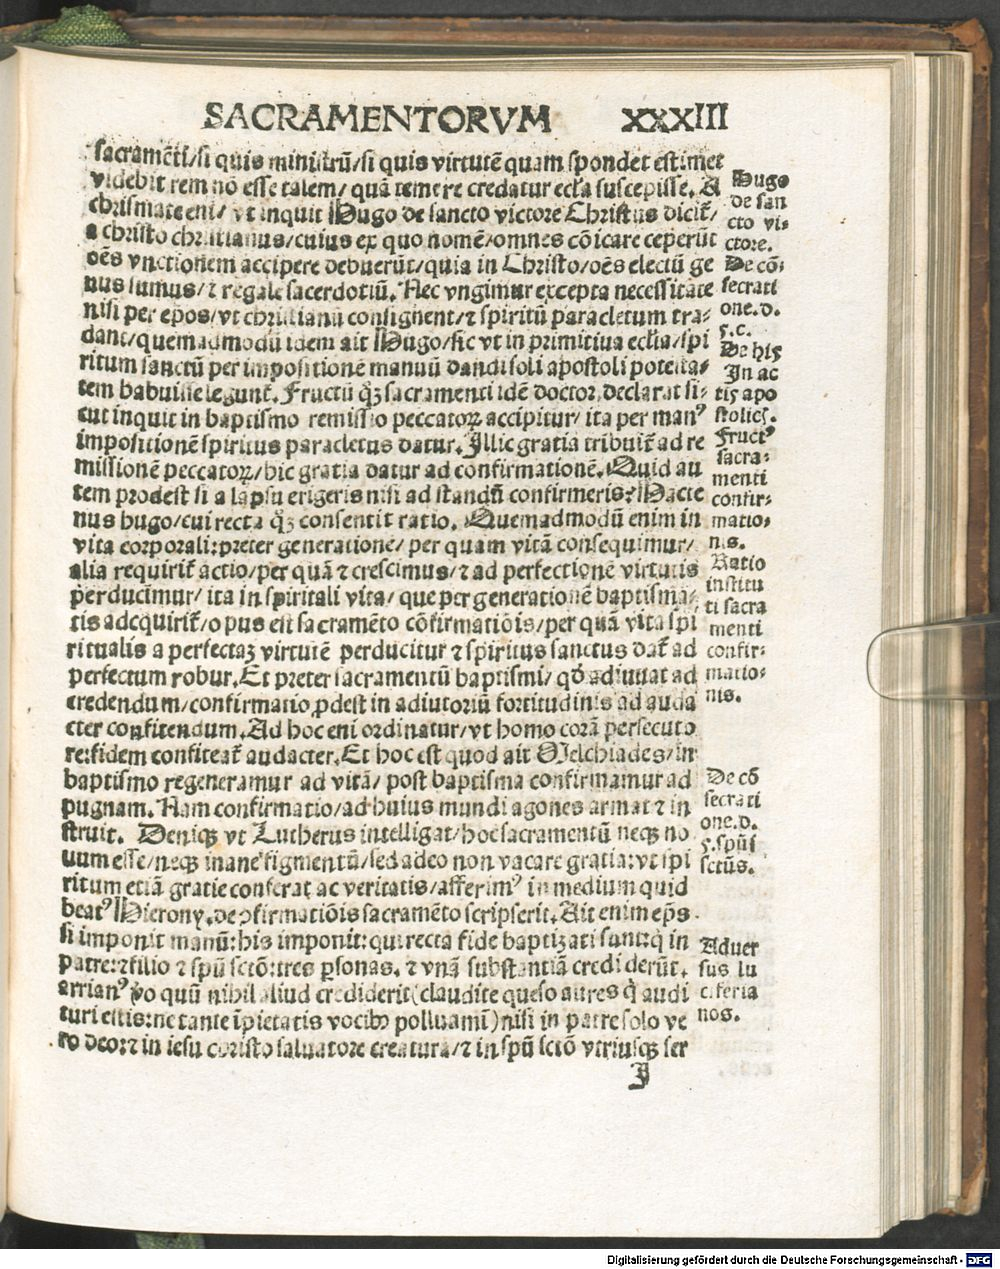 SACRAMENTORVM XXXIII
sacramēti/si quis ministrū/si quis virtutē quam spondet estimet
videbit rem nō esse talem/ quā temere credatur eccľa suscepisse. A
chrismate eni/ vt inquit Hugo de sancto victore Christus dicit̄/
a christo christianus/cuius ex quo nomē/omnes cōicare ceperūt
oēs vnctionem accipere debuerūt/quia in Christo/oēs electū ge
nus sumus/⁊ regale sacerdotiū. Nec vngimur excepta necessitate
nisi per ep̄os/vt christianū consignent/⁊ spiritū paracletum tra⸗
dant/quemadmodū idem ait Hugo/sic vt in primitiua ecclia/spi
ritum sanctū per impositionē manuū dandi soli apostoli potesta⸗
tem habuisse legunt̄. Fructū qꝫ sacramenti idē doctor declarat si⸗
cut inquit in baptismo remissio peccatoꝝ accipitur/ ita per manꝰ
impositionē spiritus paracletus datur. Illic gratia tribuit̄ ad re
missionē peccatoꝝ/hic gratia datur ad confirmationē. Quid au
tem prodest si a lapsu erigeris nisi ad standū confirmeris? Hacte
nus hugo/cui recta qꝫ consentit ratio. Quemadmodū enim in
vita corporali:preter generatione/ per quam vitā consequimur/
alia requirit̄ actio/per quā ⁊ crescimus/⁊ ad perfectionē virtutis
perducimur/ ita in spiritali vita/ que per generationē baptisma⸗
tis adequirit̄/opus est sacramēto cōfirmatiōis/per quā vita spi
ritualis a perfectaꝫ virtutē perducitur ⁊ spiritus sanctus dat̄ ad
perfectum robur. Et preter sacramentū baptismi/ qď adiuuat ad
credendum/confirmatio ꝓdest in adiutoriū fortitudinis ad auda
cter confitendum. Ad hoc eni ordinatur/vt homo corā persecuto
re:fidem confiteat̄ audacter. Et hoc est quod ait Melchiades/in
baptismo regeneramur ad vitā/ post baptisma confirmamur ad
pugnam. Nam confirmatio/ad huius mundi agones armat ⁊ in
struit. Deniqꝫ vt Lutherus intelligat/hoc sacramentū neqꝫ no
uum esse/neqꝫ inane figmentū/sed adeo non vacare gratia:vt spi
ritum etiā gratie conferat ac veritatis/afferimꝰ in medium quid
beatꝰ Hierony. de ꝯfirmatiōis sacramēto scripserit. Ait enim ep̄s
si imponit manū:his imponit:qui recta fide baptizati sunt:q̇ in
patre:⁊ filio ⁊ spū sctō:tres ꝑsonas. ⁊ vnā substantiā crediderūt.
arrianꝰ ꝟo quū nihil aliud crediderit(claudite queso aures q̇ audi
turi estis:ne tante īpietatis vocibꝰ polluamī)nisi in patre solo ve
ro deo:⁊ in iesu christo saluatore creatura/⁊ in spū sctō vtriusqꝫ ser
I
Hugo
de san
cto vi⸗
ctore.
De cō⸗
secrati
one. d.
5. c.
De his
In ac
tis apo
stolicꝭ.
Fructꝰ
sacra⸗
menti
confir⸗
matio⸗
nis.
Ratio
institu
ti sacra
menti
confir⸗
matio⸗
nis.
De cō
secrati
one. d.
5. spūs
sctūs.
Aduer
sus lu
ciferia
nos.
Digitalisierung gefördert durch die Deutsche Forschungsgemeinschaft - DFG